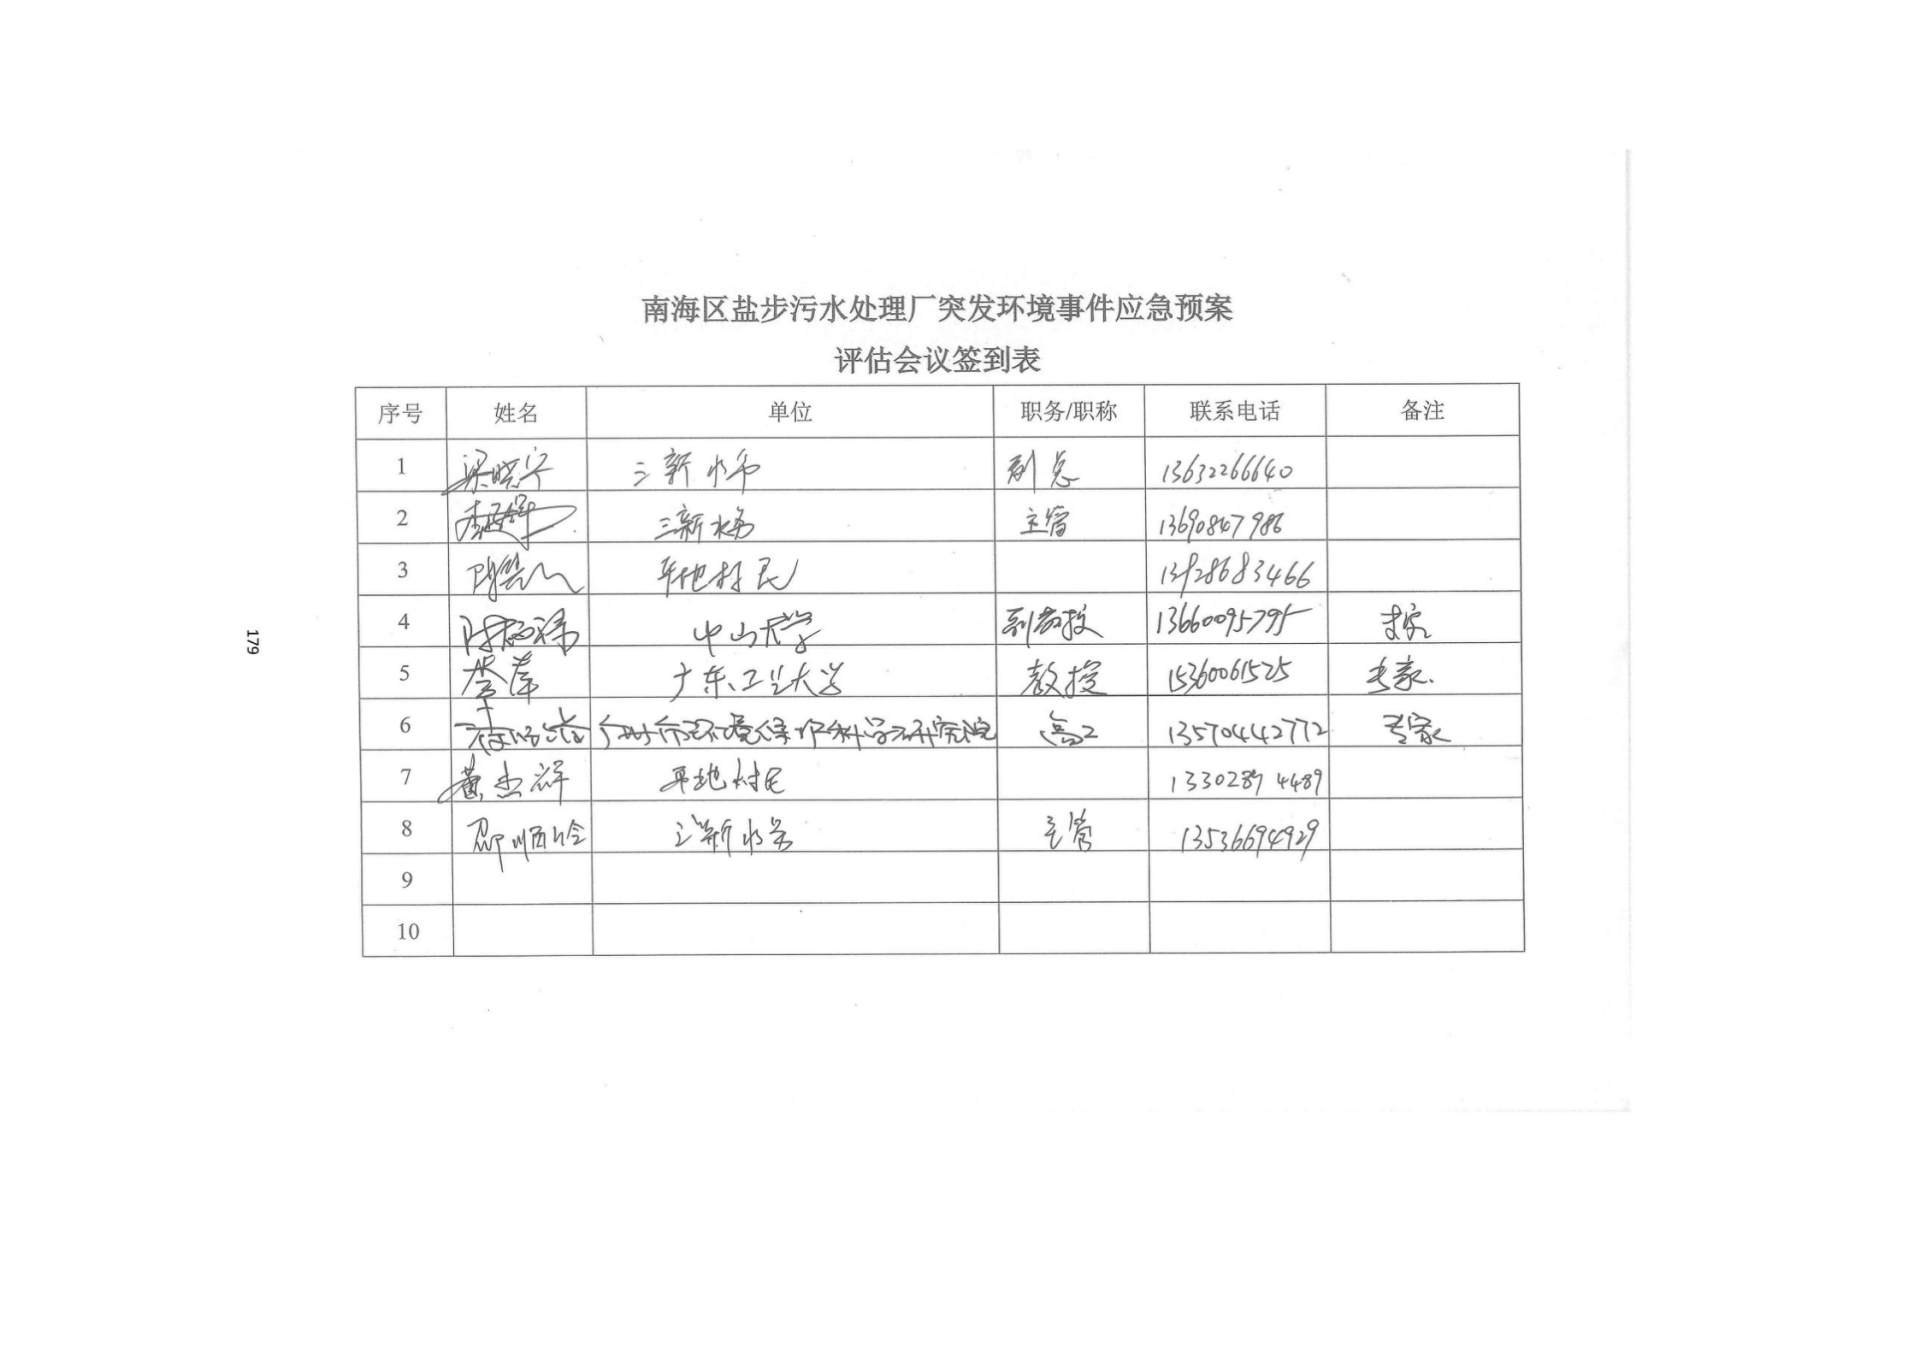 南海区盐步污水处理厂突发环境事件应急预案
评估会议签到表
序号 姓名 单位 职务/职称 联系电话 备注
1 梁晓宇 三新水务 副总 13632266640
2 三新水务 主管 13690847986
3 平地村民 13928683466
4 中山大学 副教授 13660095795 专家
5 广东工业大学 教授 15360061525 专家
6 广州市环境保护科学研究院 高工 13570442772 专家
7 黄杰祥 平地村民 13302894489
8 三新水务 主管 13536694929
9
10
179